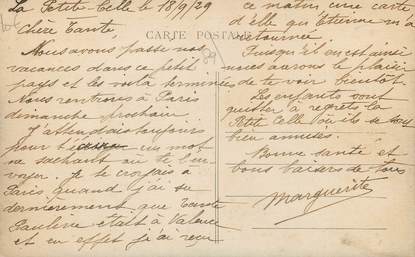 La Petite-Celle le 18/9/29
Chère Tante,
CARTE POSTALE
89
Nous avons passé nos
vacances dans ce petit
pays et les voilà terminées
Nous rentrons à Paris
dimanche prochain
J'attendais toujours
pour t' un mot
ne sachant où te l'en-
voyer. Je te croyais à
Paris quand j'ai su
dernièrement que tante
Pauline était à Valence
et en effet j'ai reçu
ce matin une carte
d'elle qu'Etienne m'a
retournée
Puisqu'il en est ainsi
nous aurons le plaisir
de te voir bientôt.
Les enfants vont
quitter à regrets la
Petite Celle où ils se sont
bien amusés.
Bonne santé et
bons baisers de tous
Marguerite